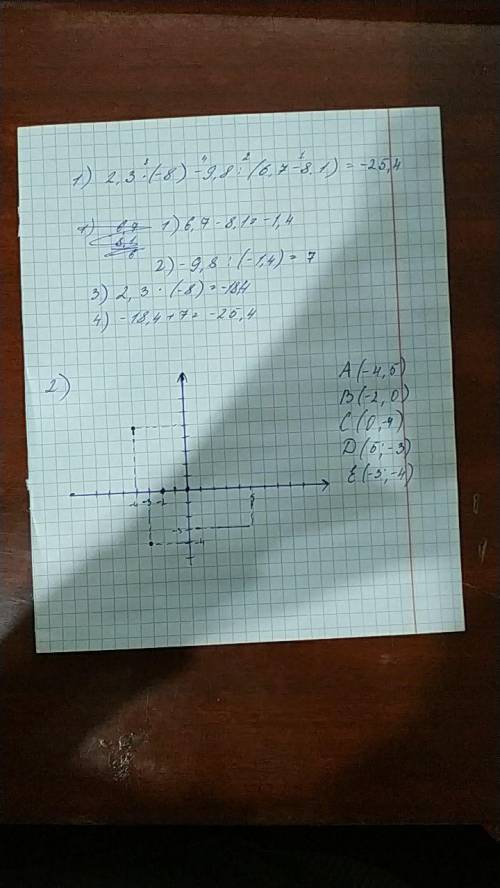 1) 2,3 · (-8) - 9,8 : (6,7 - 8,1) = -25,4
1) 6,7 - 8,1 = -1,4
2) - 9,8 : (-1,4) = 7
3) 2,3 · (-8) = -18,4
4) -18,4 + 7 = -25,4
2)
A (-4, 5)
B (-2, 0)
C (0, -4)
D (5; -3)
E (-3; -4)
-4 -3 -2 5
-3
-4